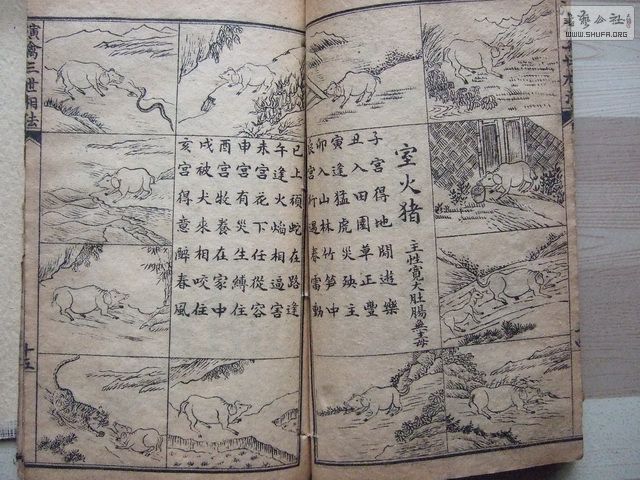 室火猪
主性寬大肚腸無毒
子宮得地閒遊樂
丑入田園草正豐
寅逢猛虎災殃主
卯入山林竹笋中
辰宮行遇春雷動
巳上頑蛇在路逢
午逢火焰相逼害
未宮花下任從容
申宮有災生縛住
酉宮牧養在家中
戌被犬來相咬住
亥宮得意醉春風
演禽三世相法
公社
WWW.SHUFA.ORG